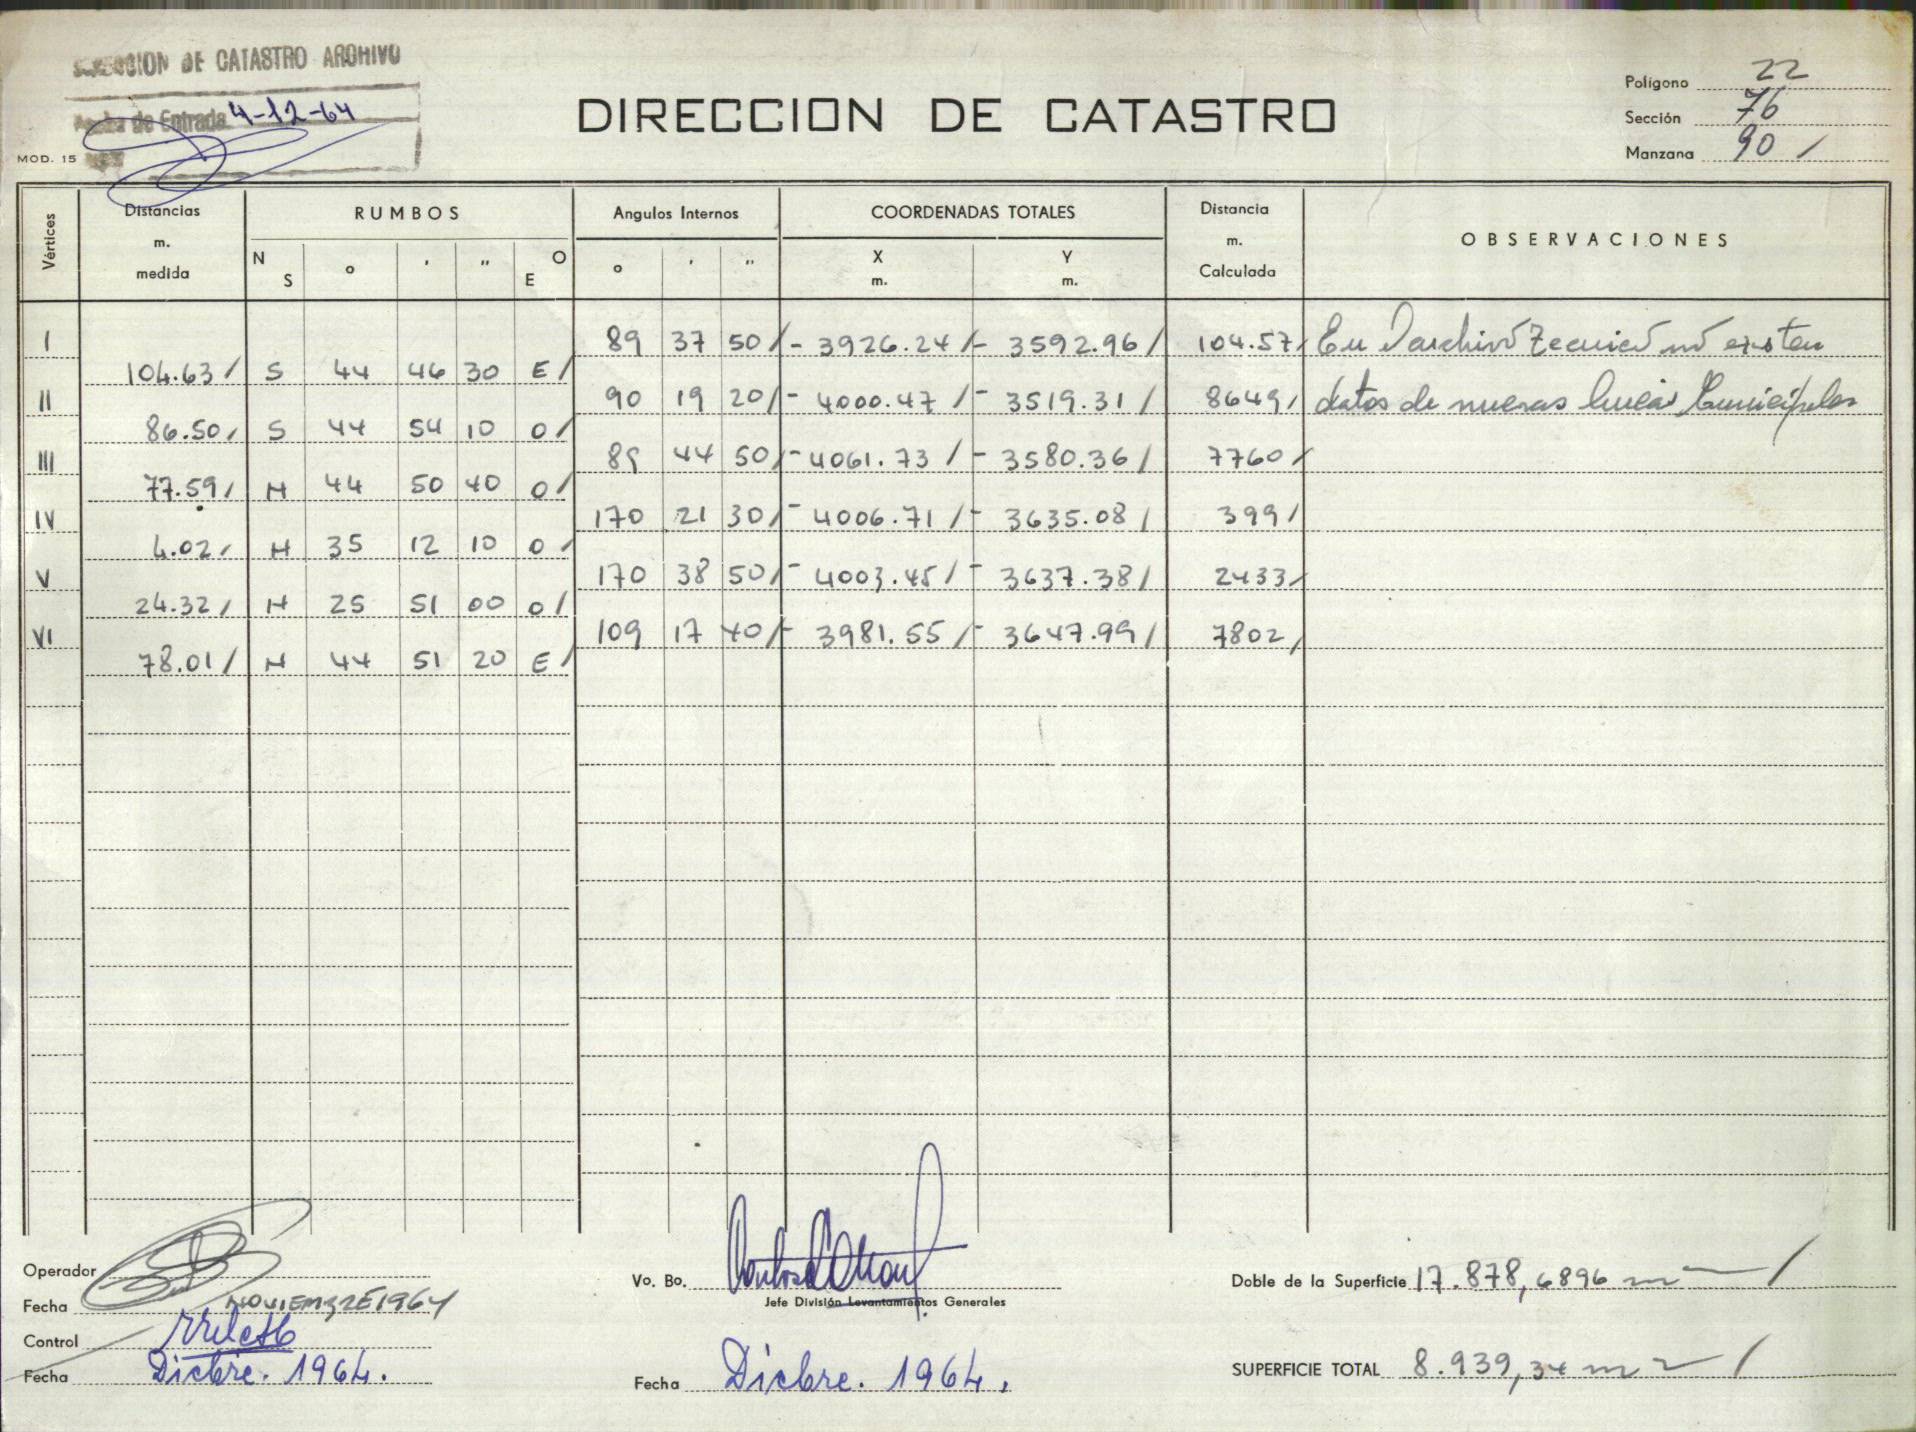 DIRECCION DE CATASTRO ARCHIVO
Fecha de Entrada 4-12-64
MOD. 15
DIRECCION DE CATASTRO
Polígono 22
Sección 76
Manzana 90 /
Vértices Distancias m. medida RUMBOS Angulos Internos COORDENADAS TOTALES Distancia m. Calculada OBSERVACIONES
N S ° ' " O E ° ' " X m. Y m.
I 89 37 50/ - 3926.24 / - 3592.96 / 104.57/ En archivo no existen
104.63 / S 44 46 30 E /
II 90 19 20/ - 4000.47 / - 3519.31 / 8649/ datos de nuevas lineas Municipales
86.50 / S 44 54 10 O /
III 89 44 50/ - 4061.73 / - 3580.36 / 7760 /
77.59 / N 44 50 40 O /
IV 170 21 30/ - 4006.71 / - 3635.08 / 399 /
4.02 / N 35 12 10 O /
V 170 38 50/ - 4003.45 / - 3637.38 / 2433 /
24.32 / N 25 51 00 O /
VI 109 17 40/ - 3981.55 / - 3647.99 / 7802 /
78.01 / N 44 51 20 E /
Operador
Fecha NOVIEMBRE 1964
Control
Fecha Dicbre. 1964.
Vo. Bo.
Jefe División Levantamientos Generales
Fecha Dicbre. 1964.
Doble de la Superficie 17.878,6896 m² /
SUPERFICIE TOTAL 8.939,34 m² /